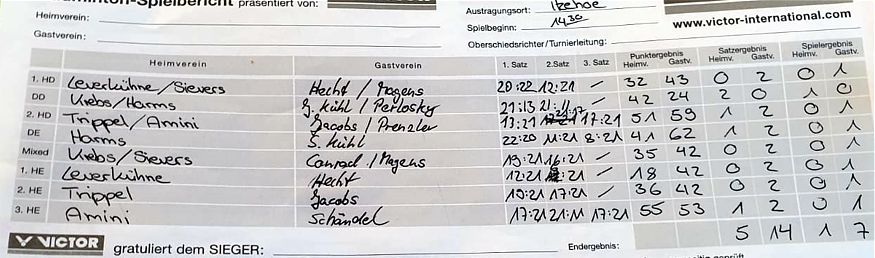 Badminton-Spielbericht präsentiert von:
Heimverein:
Gastverein:
Austragungsort: Itzehoe
Spielbeginn: 14.30
Oberschiedsrichter/Turnierleitung:
www.victor-international.com
Heimverein Gastverein 1. Satz 2. Satz 3. Satz Punktergebnis Heimv. Gastv. Satzergebnis Heimv. Gastv. Spielergebnis Heimv. Gastv.
1. HD Leverkühne/Sievers Hecht / Magens 20:22 12:21 / 32 43 0 2 0 1
DD Krebs/Harms J. Kühl / Perlosky 21:13 21:11 / 42 24 2 0 1 0
2. HD Trippel/Amini Jacobs / Prenzler 13:21 21:17 17:21 51 59 1 2 0 1
DE Harms S. Kühl 22:20 11:21 8:21 41 62 1 2 0 1
Mixed Krebs/Sievers Conrad / Magens 19:21 16:21 / 35 42 0 2 0 1
1. HE Leverkühne Hecht 12:21 :21 / 18 42 0 2 0 1
2. HE Trippel Jacobs 19:21 17:21 / 36 42 0 2 0 1
3. HE Amini Schändel 17:21 21:11 17:21 55 53 1 2 0 1
5 14 1 7
VICTOR gratuliert dem SIEGER: Endergebnis: